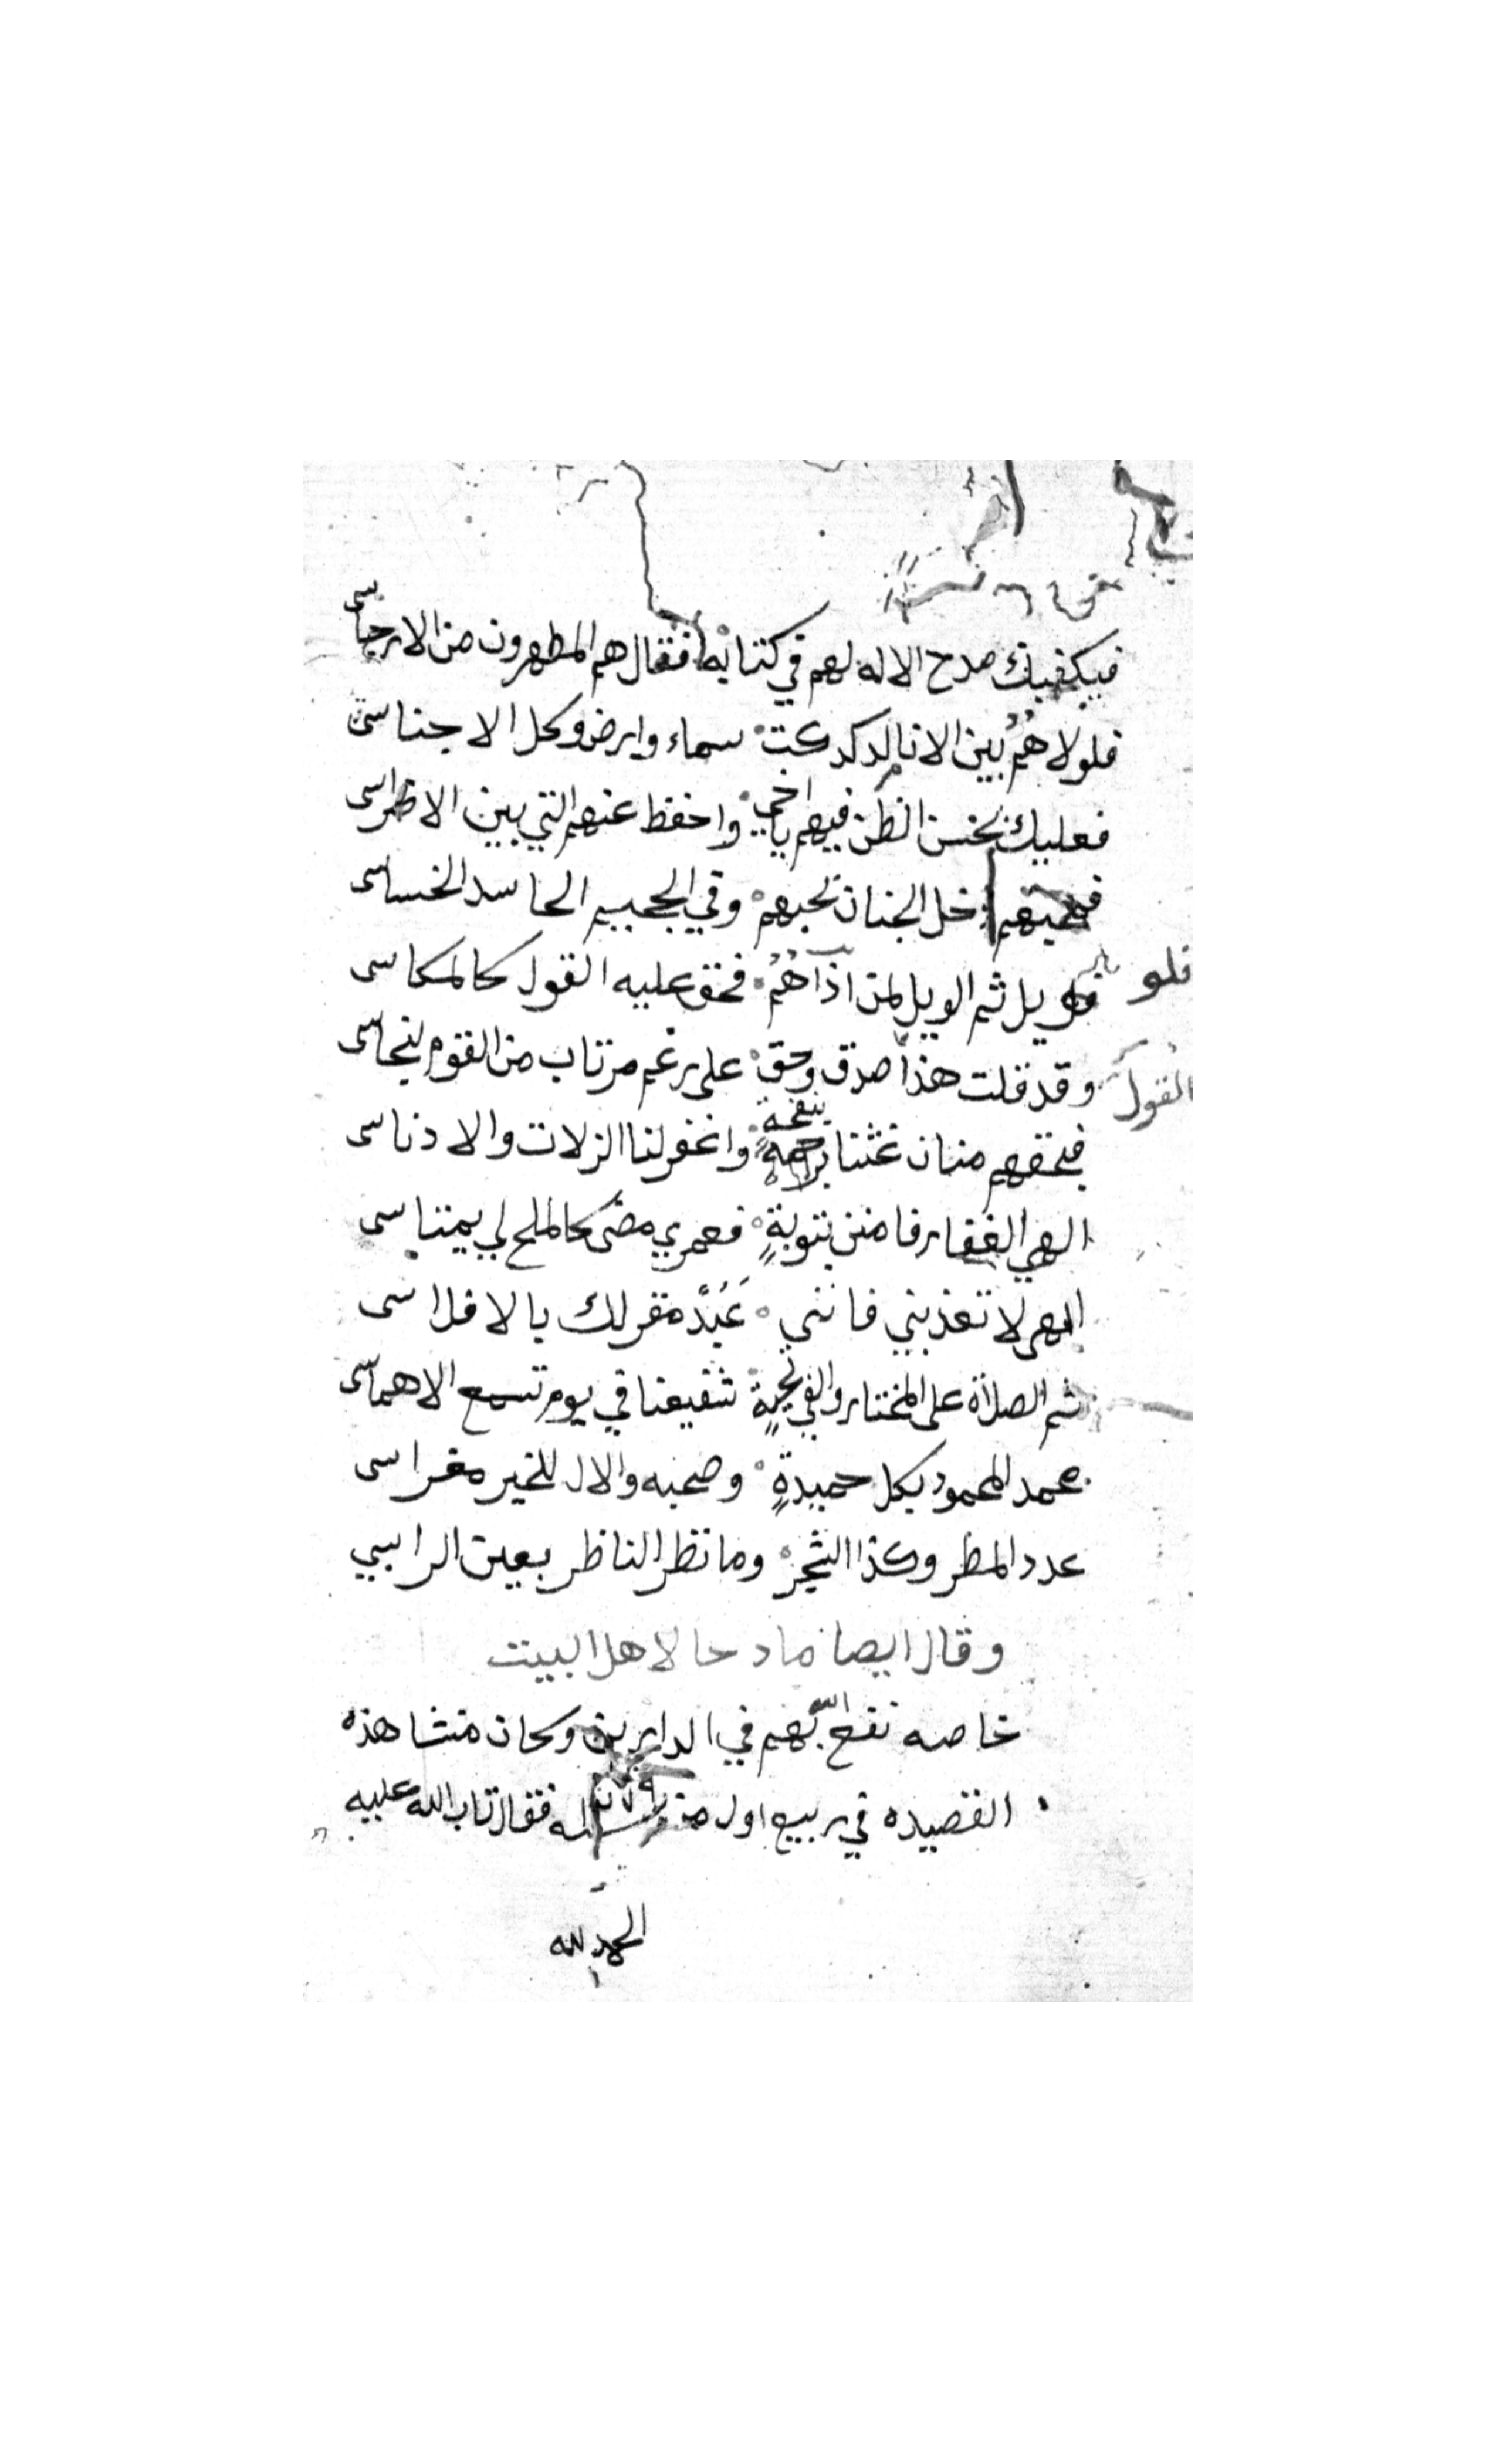 فيكفيك مدح الاله لهم في كتابه فقال هم المطهرون من الارجاسى
فلولا هُمُ بين الانام لدكدكت سماء وارض وكل الاجناسى
فعليك بحسن الظن فيهم يا اخي واحفظ عنهم التي بين الاضراسى
فمحبهم دخل الجنان بحبهم وفي الجحيم الحاسد الخساسى
فلو
فويل ثم الويل لمن اذآهُمُ فحق عليه القول كالمكاسى
القول
وقد قلت هذا صدق وحق على رغم مرتاب من القوم
فبحقهم منان غثنا برحمةٍ واغفر لنا الزلات والادناسى
بنفحةٍ
الهي الغفار فامنن بتوبةٍ فعمري مضى كالملح لي بيمناسى
الهى لا تعذبني فانني عَبُدٌ مقر لك بالافلاسى
ثم الصلاة على المختار والفي تحيةٍ شفيعنا في يوم تسمع الاهماسى
محمد المحمود بكل حميدةٍ وصحبه والال للخير مغراسى
عدد المطر وكذا الشجر وما نظر الناظر بعين الراسي
وقال ايضا مادحا لاهل البيت
خاصه نفع الله بهم في الدارين وكان منشا هذه
القصيده في ربيع اول من سنه فقال تاب الله عليه
الحمد لله